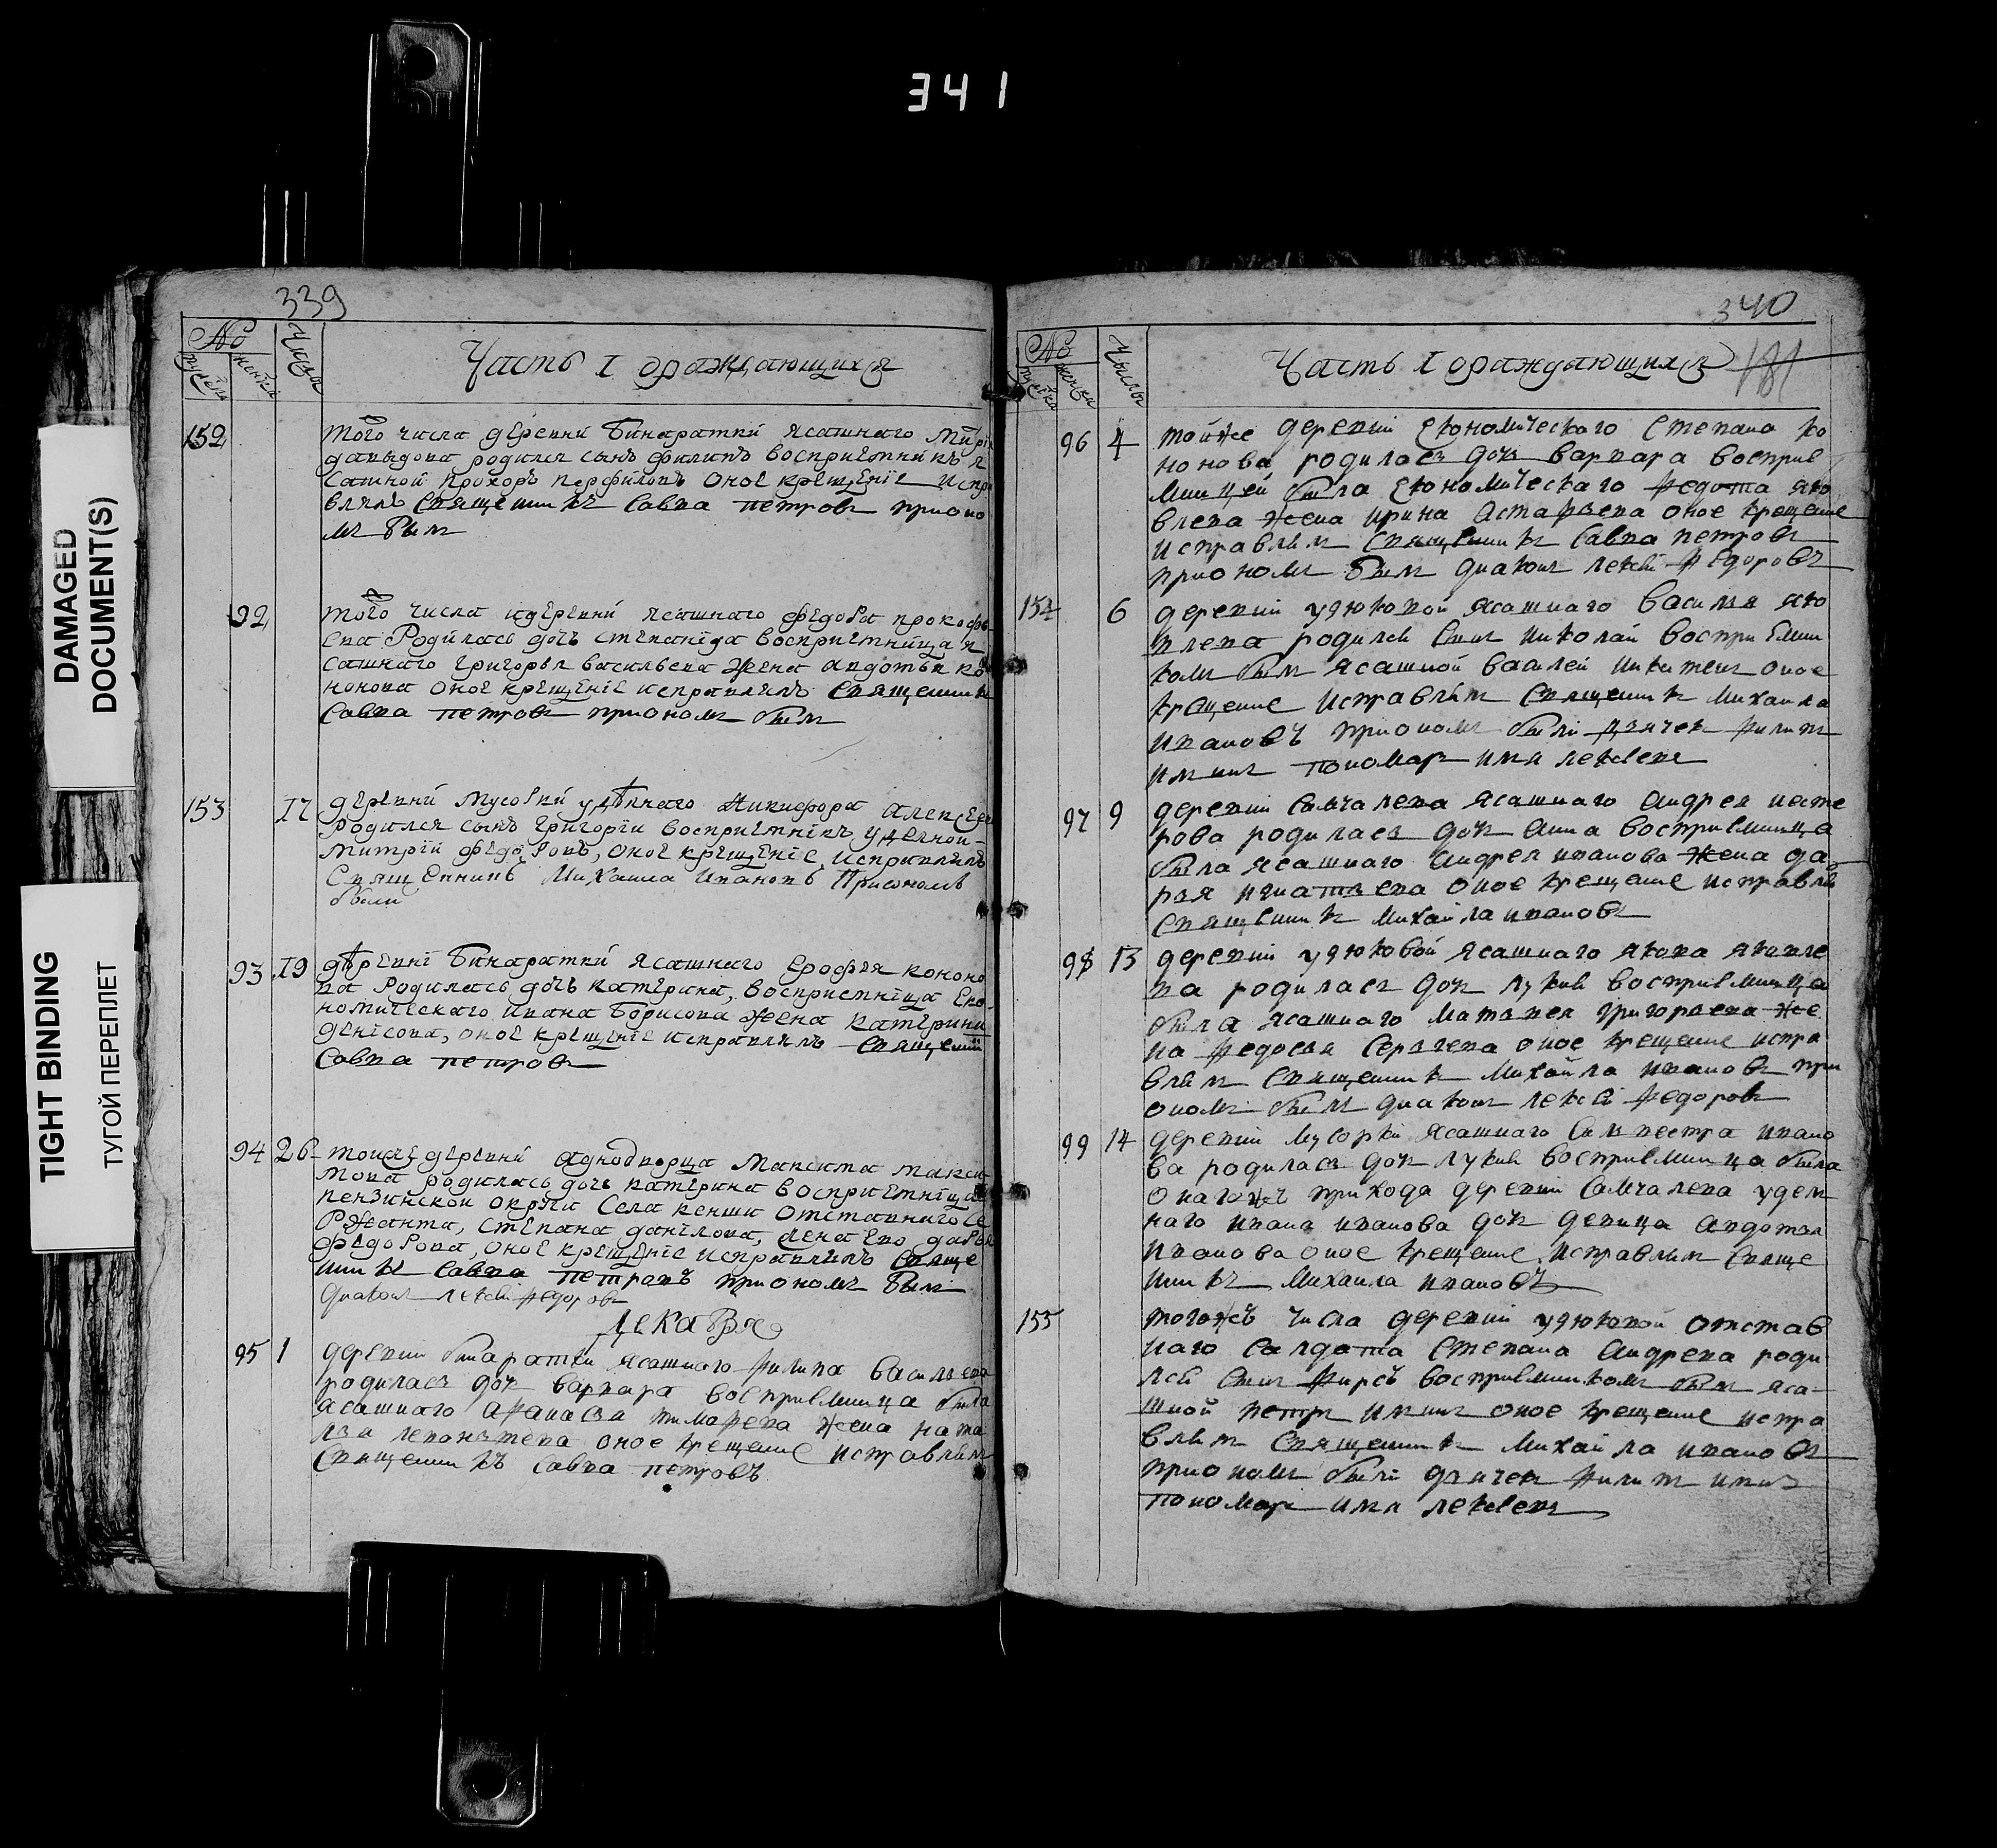 341
DAMAGED
DOCUMENT(S)
TIGHT BINDING
ТУГОЙ ПЕРЕПЛЕТ
339
№
Числы
Часть I ораждающихся
152 того числа деревни Бикаратки ясашнаго
давыдова родился сынъ филипъ восприемникъ я
сашной Прохоръ Перфиловъ оное крещение испра
влялъ священникъ Савва петровъ прионо
мъ былъ
92 того числа деревни ясашнаго федора прокофь
ева Родилась дочь степанида восприемница я
сашнаго григорья васильева жена авдотья ко
нонова оное крещение исправлялъ священникъ
Савва петровъприономъ былъ
153 17 деревни Мусорки удѣлнаго Никифора алексеева
родился сынъ григории восприемникъ уделной
митрии федоровъ, оное крещение, исправлялъ
Священникъ Михаила Ивановъ Приономъ
были
93 19 дѣревни Бикаратки ясашнаго Ерофея кононо
ва Родилась дочь катерина, восприемница Еко
номическаго ивана борисова жена катерина
денисова, оное крещение исправлялъ священни
Савва петровъ
94 26 тойже деревни аднодворца Максима макси
мова родилась дочь катерина восприемница
пензинской округи Села кенши отставнаго се
Ржанта, степана данилова, жена ево дарья
федорова, оное крещение исправлялъ Свяще
нникъ Савва петравъ приономъ былъ
диаконъ лексѣй федоровъ
Декабря
95 1 деревни бикаратки ясашнаго филипа васильева
родилась дочь варвара восприемница была
ясашнаго афанасья тимофева жена ната
лья леонтьева оное крещение исправлялъ
священникъ Савва петровъ
340
№
Числы
Часть I ораждающихся 181
96 4 тойже деревни економическаго Степана ко
нонова родилась дочь варвара восприе
мницей была економическаго федота яко
влева жена ирина астафьева оное крещение
исправлялъ священникъ Савва петровъ
приономъ былъ диаконъ лексѣй федоровъ
154 6 деревни удюковой ясашнаго Василья яко
влева родился сынъ николай восприемни
комъ былъ ясашной василей никитинъ оное
крещение исправлялъ священникъ михаила
ивановъ приономъ были дьячекъ филипъ
ильинъ пономаръ илья лексѣевъ
97 9 деревни самчалеева ясашнаго андрея несте
рова родилась дочь анна восприемница
была ясашнаго андрея иванова жена да
рья игнатьева оное крещение исправлялъ
священникъ михайла ивановъ
98 13 деревни удюковой ясашнаго якова яковле
ва родилась дочь лукия восприемница
была ясашнаго матвея григорьева же
на федосья Сергеева оное крещение испра
влялъ священникъ михайла ивановъ при
ономъ былъ диаконъ лексѣй федоровъ
99 14 деревни мусорки ясашнаго Силвестра ивано
ва родилась дочь лукия восприемница была
онагожъ прихода деревни самчалеева удел
наго ивана иванова дочь девица авдотья
иванова оное крещение исправлялъ свяще
нникъ михаила ивановъ
155 тогожъ числа деревни удюковой отстав
наго салдата Степана андреева роди
лся сынъ фирсъ восприемникомъ былъ яса
шной петръ ильинъ оное крещение испра
влялъ священникъ михайла ивановъ
приономъ были дьячекъ филипъ ильинъ
пономаръ илья лексѣевъ